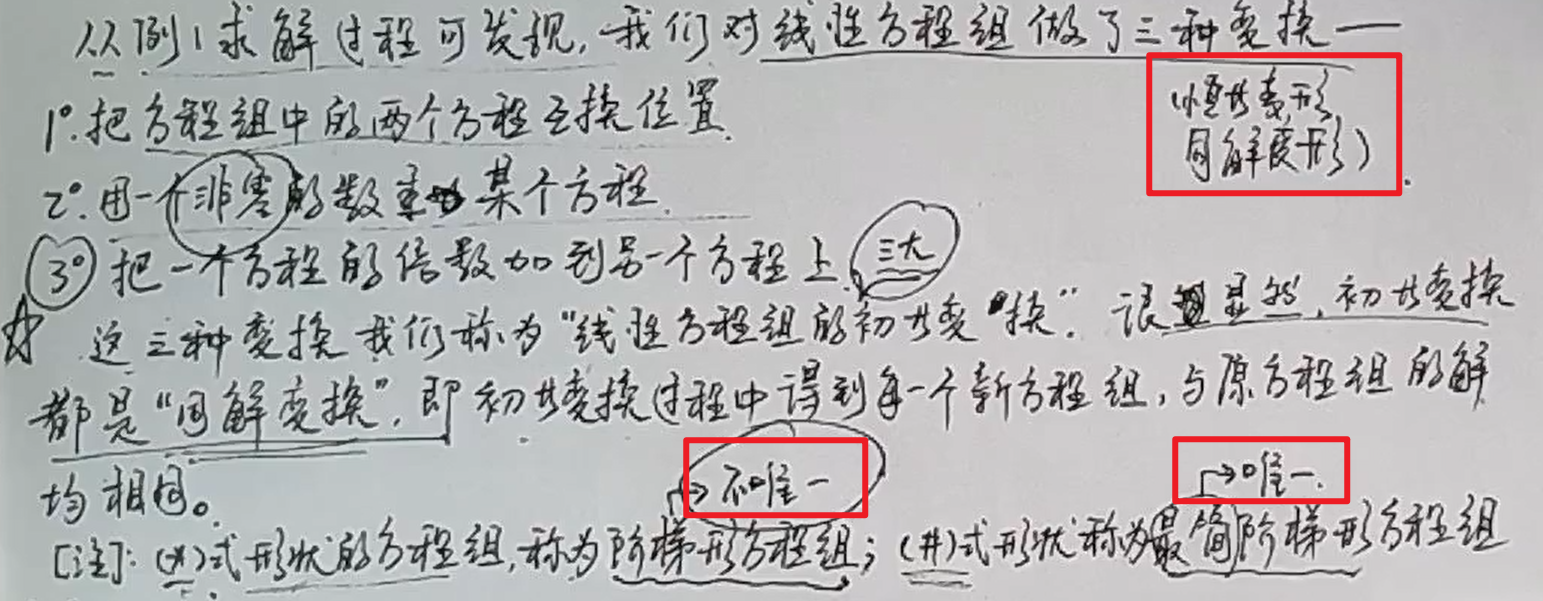 从例1求解过程可发现,我们对线性方程组做了三种变换——
1°.把方程组中的两个方程互换位置.
(恒等变形
同解变形)
2°.用一个非零的数乘某个方程.
3°把一个方程的倍数加到另一个方程上. 三大
☆ 这三种变换我们称为"线性方程组的初等变换". 很显然,初等变换
都是"同解变换",即初等变换过程中得到每一个新方程组,与原方程组的解
均相同。
→不唯一
→唯一.
[注]:(*)式形状的方程组,称为阶梯形方程组;(#)式形状称为最简阶梯形方程组